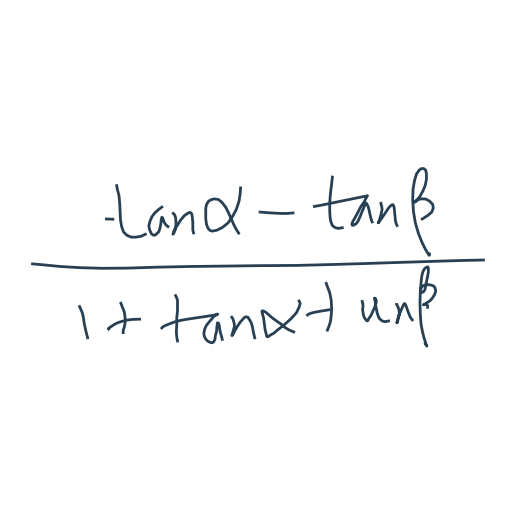 tanα − tanβ
1 + tanα tanβ